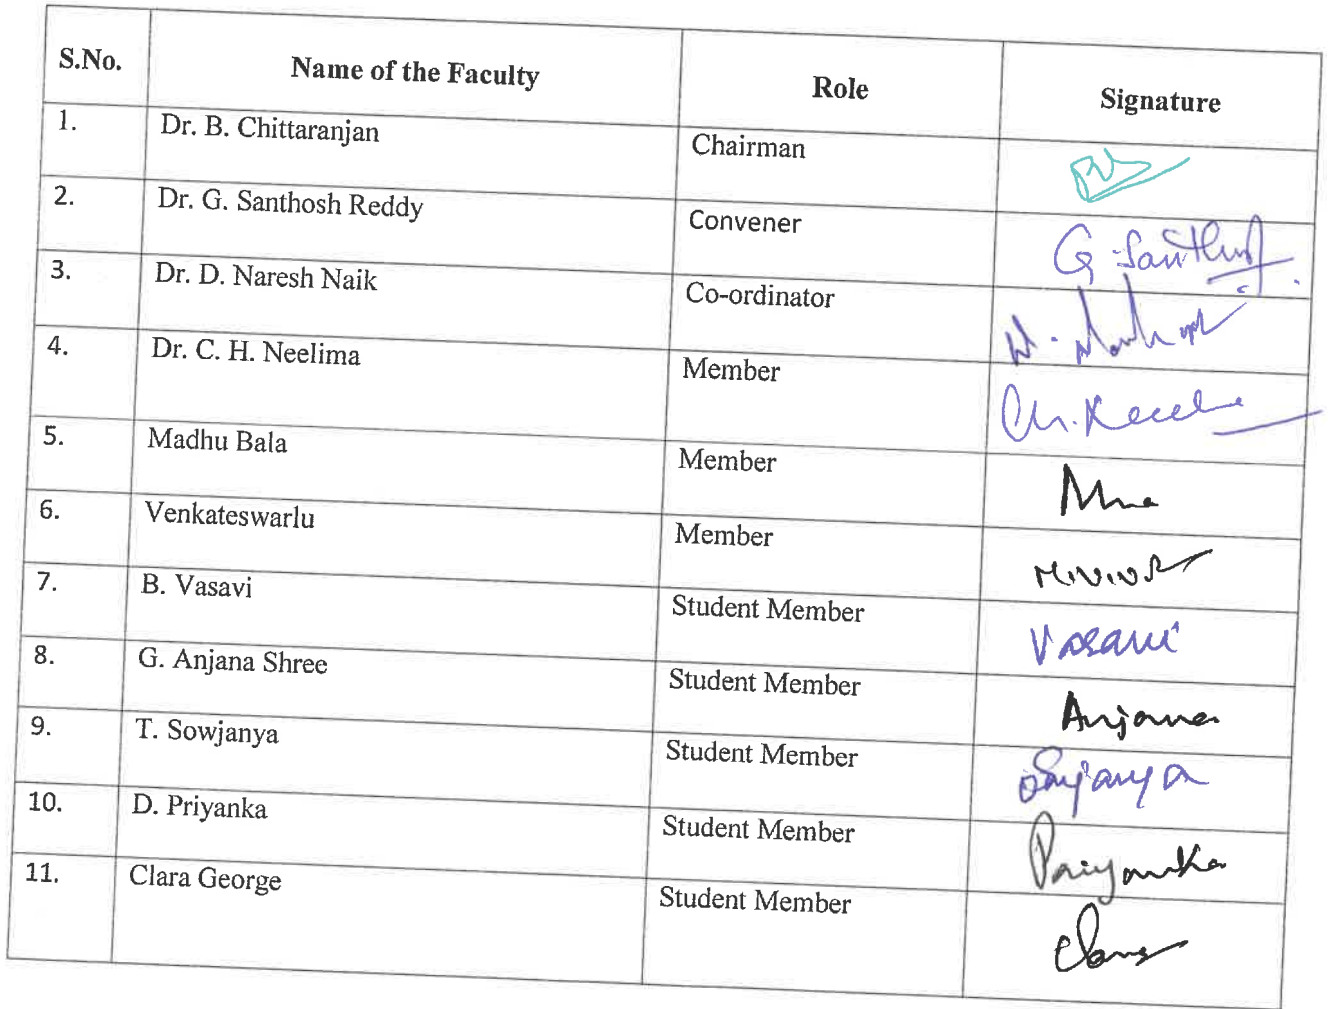 S.No. Name of the Faculty Role Signature
1. Dr. B. Chittaranjan Chairman
2. Dr. G. Santhosh Reddy Convener G. Santhosh
3. Dr. D. Naresh Naik Co-ordinator
4. Dr. C. H. Neelima Member
5. Madhu Bala Member
6. Venkateswarlu Member
7. B. Vasavi Student Member Vasavi
8. G. Anjana Shree Student Member Anjana
9. T. Sowjanya Student Member Sowjanya
10. D. Priyanka Student Member Priyanka
11. Clara George Student Member Clara